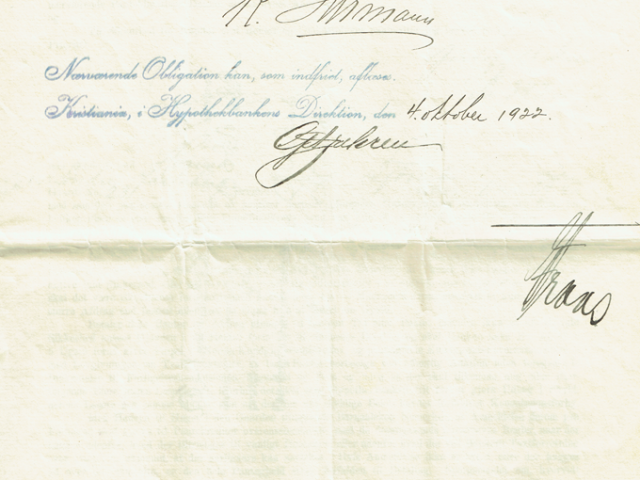 Nærværende Obligation kan, som indfriet, aflæses.
Kristiania, i Hypothekbankens Direktion, den 4. oktober 1922.